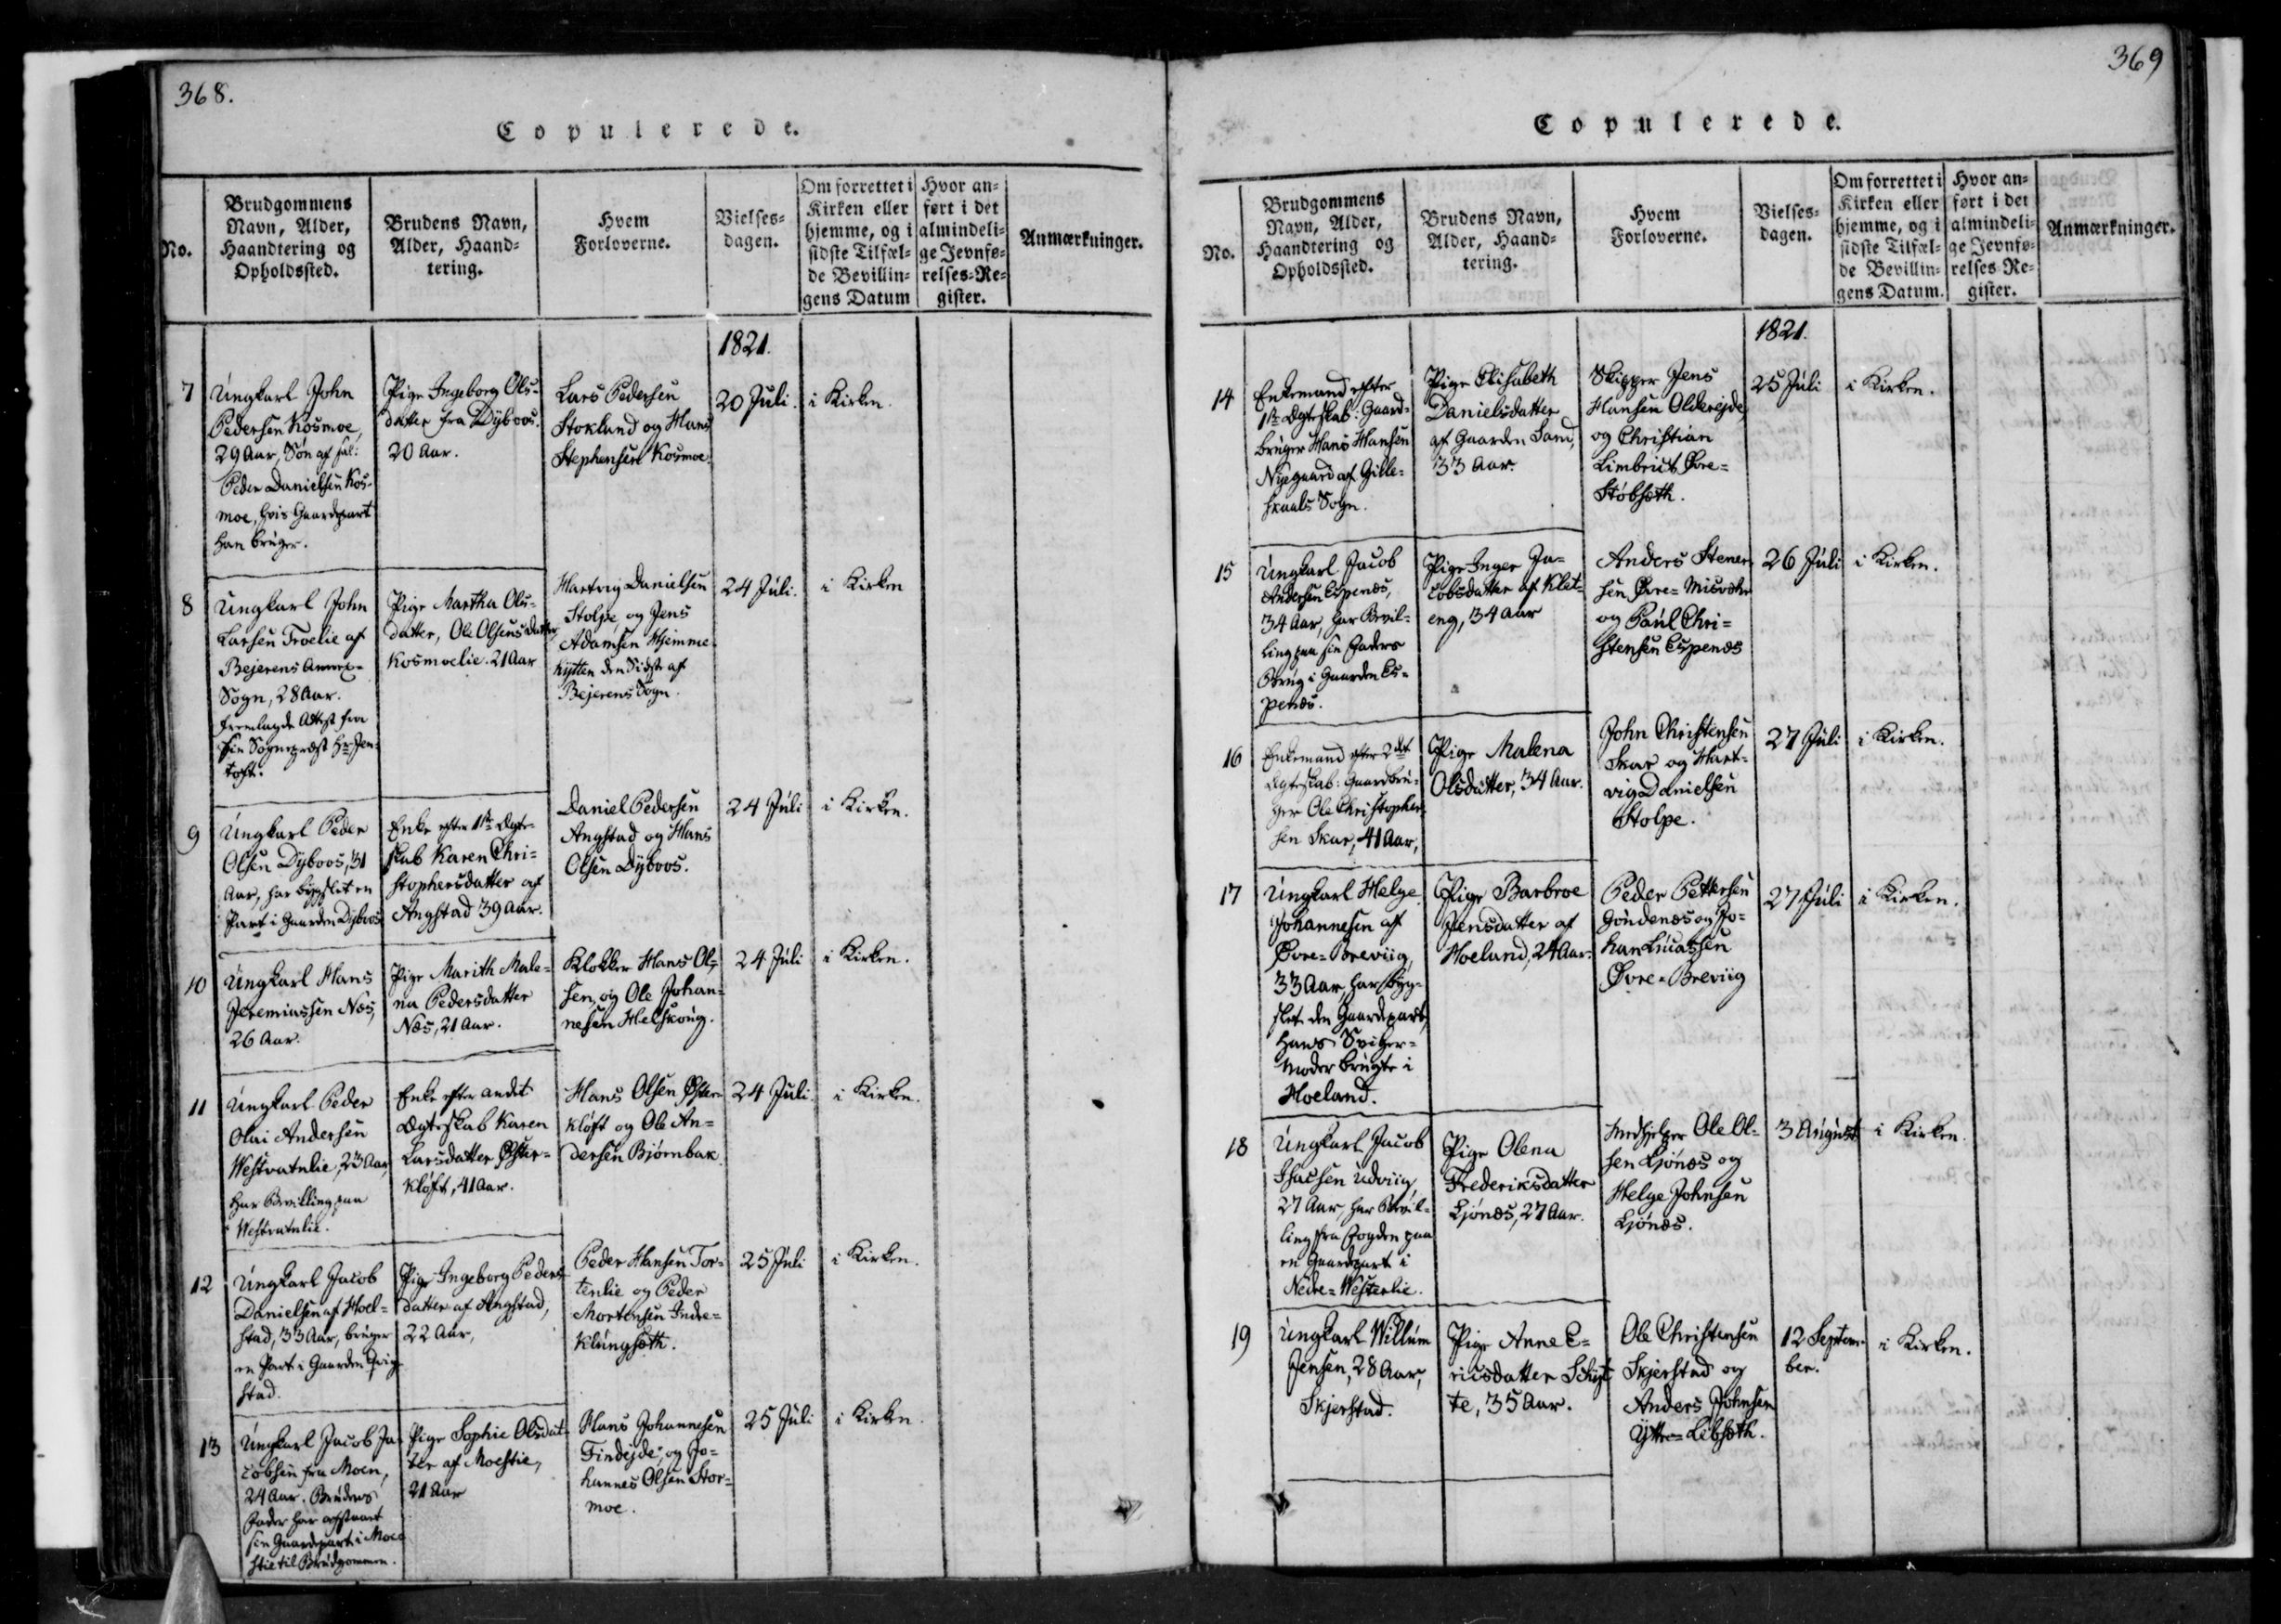 368.
Copulerede.
No.
Brudgommens
Navn, Alder,
Haandtering og
Opholdssted.
Brudens Navn,
Alder, Haand-
tering.
Hvem
Forloverne.
Vielses-
dagen.
Om forrettet i
Kirken eller
hjemme, og i
sidste Tilfæl-
de Bevillin-
gens Datum
Hvor an-
ført i det
almindeli-
ge Jevnfø-
relses-Re-
gister.
Anmærkninger.
1821.
7
Ungkarl John
Pedersen Kosmoe,
29 Aar, Søn af sal:
Peder Danielsen Kos-
moe, hvis Gaardpart
han bruger.
Pige Ingeborg Ols-
datter fra Dybvos.
20 Aar.
Lars Pedersen
Stokland og Hans
Stephensen Kosmoe.
20 Juli.
i Kirken.
8
Ungkarl John
Larsen Troelie af
Bejerens Annex-
Sogn, 28 Aar.
fremlagde Attest fra
sin Sognepræst Hr Jen-
toft.
Pige Martha Ols-
datter, Ole Olsens datter
Kosmoelie. 21 Aar
Hartvig Danielsen
Stolpe, og Jens
Adamsen Hjemme
kytten den Sidste af
Bejerens Sogn.
24 Juli.
i Kirken
9
Ungkarl Peder
Olsen Dybvos, 31
Aar, har bygslet en
Part i Gaarden Dybvos
Enke efter 1ste Ægte-
skab Karen Chri-
stophersdatter af
Angstad 39 Aar.
Daniel Pedersen
Angstad og Hans
Olsen Dybvos.
24 Juli
i Kirken.
10
Ungkarl Hans
Jeremiassen Næs,
26 Aar.
Pige Marith Male-
na Pedersdatter
Næs, 21 Aar.
Klokker Hans Ol-
sen, og Ole Johan-
nesen Helskoug.
24 Juli
i Kirken.
11
Ungkarl Peder
Olai Andersen
Westvatnlie, 23 Aar,
har Bevilling paa
Westvatnlie.
Enke efter andet
Ægteskab Karen
Larsdatter Øster-
kløft, 41 Aar.
Hans Olsen Øster-
kløft og Ole An-
dersen Bjørnbak
24 Juli.
i Kirken.
12
Ungkarl Jacob
Danielsen af Hoel-
stad, 33 Aar, bruger
en Part i Gaarden Qvig-
stad.
Pige Ingeborg Peders-
datter af Angstad,
22 Aar,
Peder Hansen Tor-
tenlie og Peder
Mortensen Indre-
Klungsæth.
25 Juli
i Kirken.
13
Ungkarl Jacob Ja-
cobsen fra Moen,
24 Aar. Brudens
Fader har afstaaet
sin Gaardpart i Moe-
stie til Brudgommen.
Pige Sophie Olsdat-
ter af Moestie,
21 Aar
Hans Johannesen
Findejde, og Jo-
hannes Olsen Stor-
moe.
25 Juli
i Kirken.
369
Copulerede.
No.
Brudgommens
Navn, Alder,
Haandtering og
Opholdssted.
Brudens Navn,
Alder, Haand-
tering.
Hvem
Forloverne.
Vielses-
dagen.
Om forrettet i
Kirken eller
hjemme, og i
sidste Tilfæl-
de Bevillin-
gens Datum.
Hvor an-
ført i det
almindeli-
ge Jevnfø-
relses Re-
gister.
Anmærkninger.
1821.
14
Enkemand efter
1ste Ægteskab: Gaard-
bruger Hans Hansen
Nygaard af Gille-
skaals Sogn.
Pige Elisabeth
Danielsdatter
af Gaarden Sand,
33 Aar.
Skipper Jens
Hansen Olderejde,
og Christian
Limbrict Øvre-
Støbsæth.
25 Juli
i Kirken.
15
Ungkarl Jacob
Andersen Espenæs,
34 Aar, har Bevil-
ling paa sin Faders
Brug i Gaarden Es-
penæs.
Pige Inger Ja-
cobsdatter af Klet-
eng, 34 Aar
Anders Stener
sen Øvre-Misvær
og Paul Chri-
stensen Espenæs
26 Juli
i Kirken.
16
Enkemand efter 2det
Ægteskab: Gaardbru-
ger Ole Christopher-
sen Skar, 41 Aar,
Pige Malena
Olsdatter, 34 Aar.
John Christensen
Skar og Hart-
vig Danielsen
Stolpe.
27 Juli
i Kirken.
17
Ungkarl Helge
Johannesen af
Øvre-Breviig,
33 Aar, har byg-
slet den Gaardpart,
hans Sviger-
moder brugte i
Hoeland.
Pige Barbroe
Jensdatter af
Hoeland, 24 Aar.
Peder Pettersen
Gøndenæs og Jo-
han Lucassen
Øvre-Breviig
27 Juli
i Kirken.
18
Ungkarl Jacob
Isacsen Udviig,
27 Aar, har Bevil-
ling fra Fogden paa
en Gaardpart i
Nedre-Westerlie.
Pige Olena
Frederiksdatter
Ljønæs, 27 Aar.
Medhjelper Ole Ol-
sen Ljønæs og
Helge Johnsen
Ljønæs.
3 August
i Kirken.
19
Ungkarl Willum
Jensen, 28 Aar,
Skjerstad.
Pige Anne E-
ricsdatter Schyt-
te, 35 Aar.
Ole Christensen
Skjerstad og
Anders Johnsen
Yttre-Lebsæth.
12 Septem-
ber.
i Kirken.